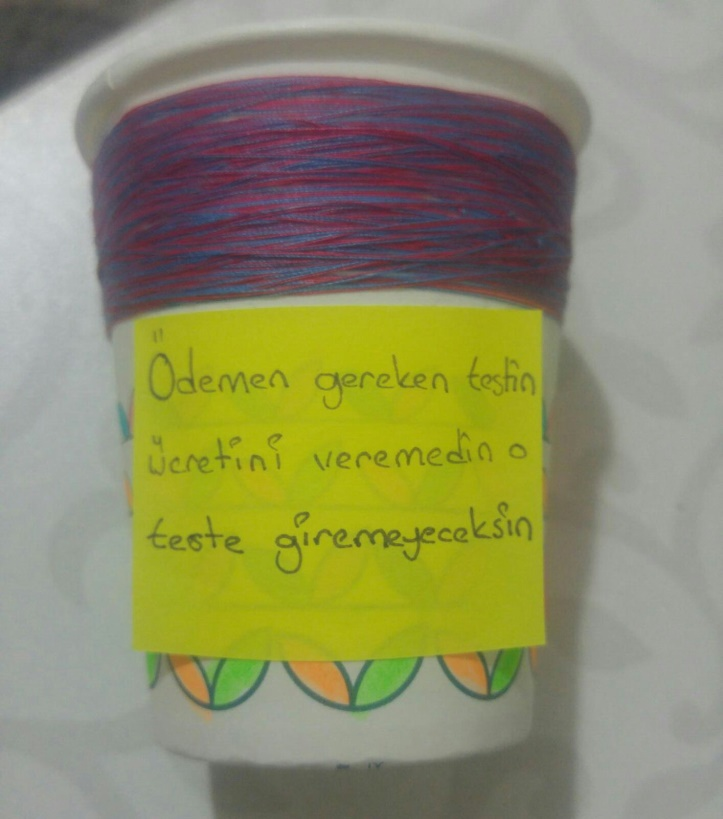 Ödemen gereken testin
ücretini veremedin o
teste giremeyeceksin